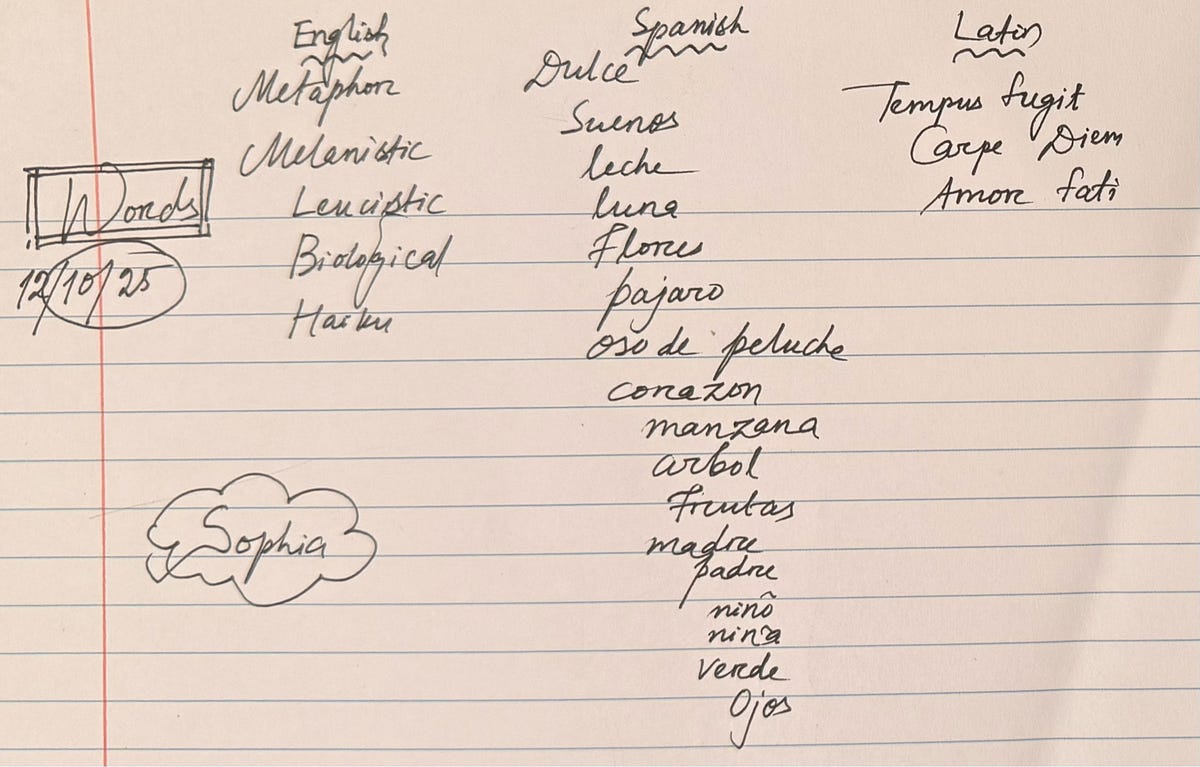 English
Metaphor
Melanistic
Leucistic
Biological
Haiku
Spanish
Dulce
Suenos
leche
luna
Flores
pajaro
oso de peluche
corazon
manzana
arbol
Frutas
madre
padre
niño
niña
verde
Ojos
Latin
Tempus fugit
Carpe Diem
Amor fati
Words
12/10/25
Sophia